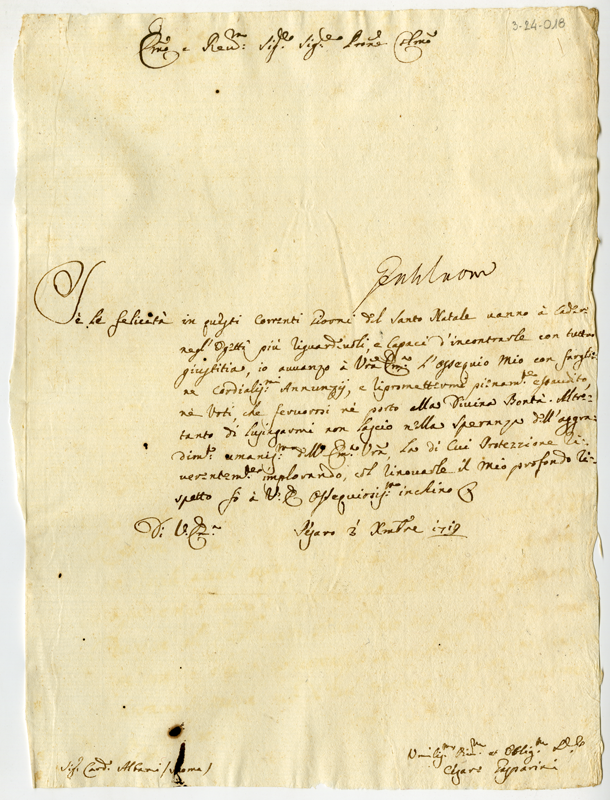 3-24-018
Em͞o e Rev.mo Sig.re Sig.re Prone Colmo
Se le felicità in questi correnti giorni del Santo Natale vanno à cader
negl' Ogetti più riguardevoli, e capaci d'incontrarle con tutta
giustitia, io avvanzo à Vra Em.a L'Ossequio Mio con fargli-
ne Cordialis.mi Annunzij, e ripromettermi pienam.te esaudito,
ne Voti che fervorosi nè porto alla Divina Bontà. Altre-
tanto di lusingarmi non lascio nella speranza dell'aggra-
dim.to umanis.mo dell' Em.a Vra, La di Cui Protezzione ri-
verentem.te implorando, col rinovarle il mio profondo ri-
spetto fò à V.ra E. Ossequiosis.mo inchino
Di V. Em.a
Pesaro 2 Xmbre 1719
Sig.r Card. Albani (Roma)
Umilis.mo Div.mo et Oblig.mo
Cesare Gasparini